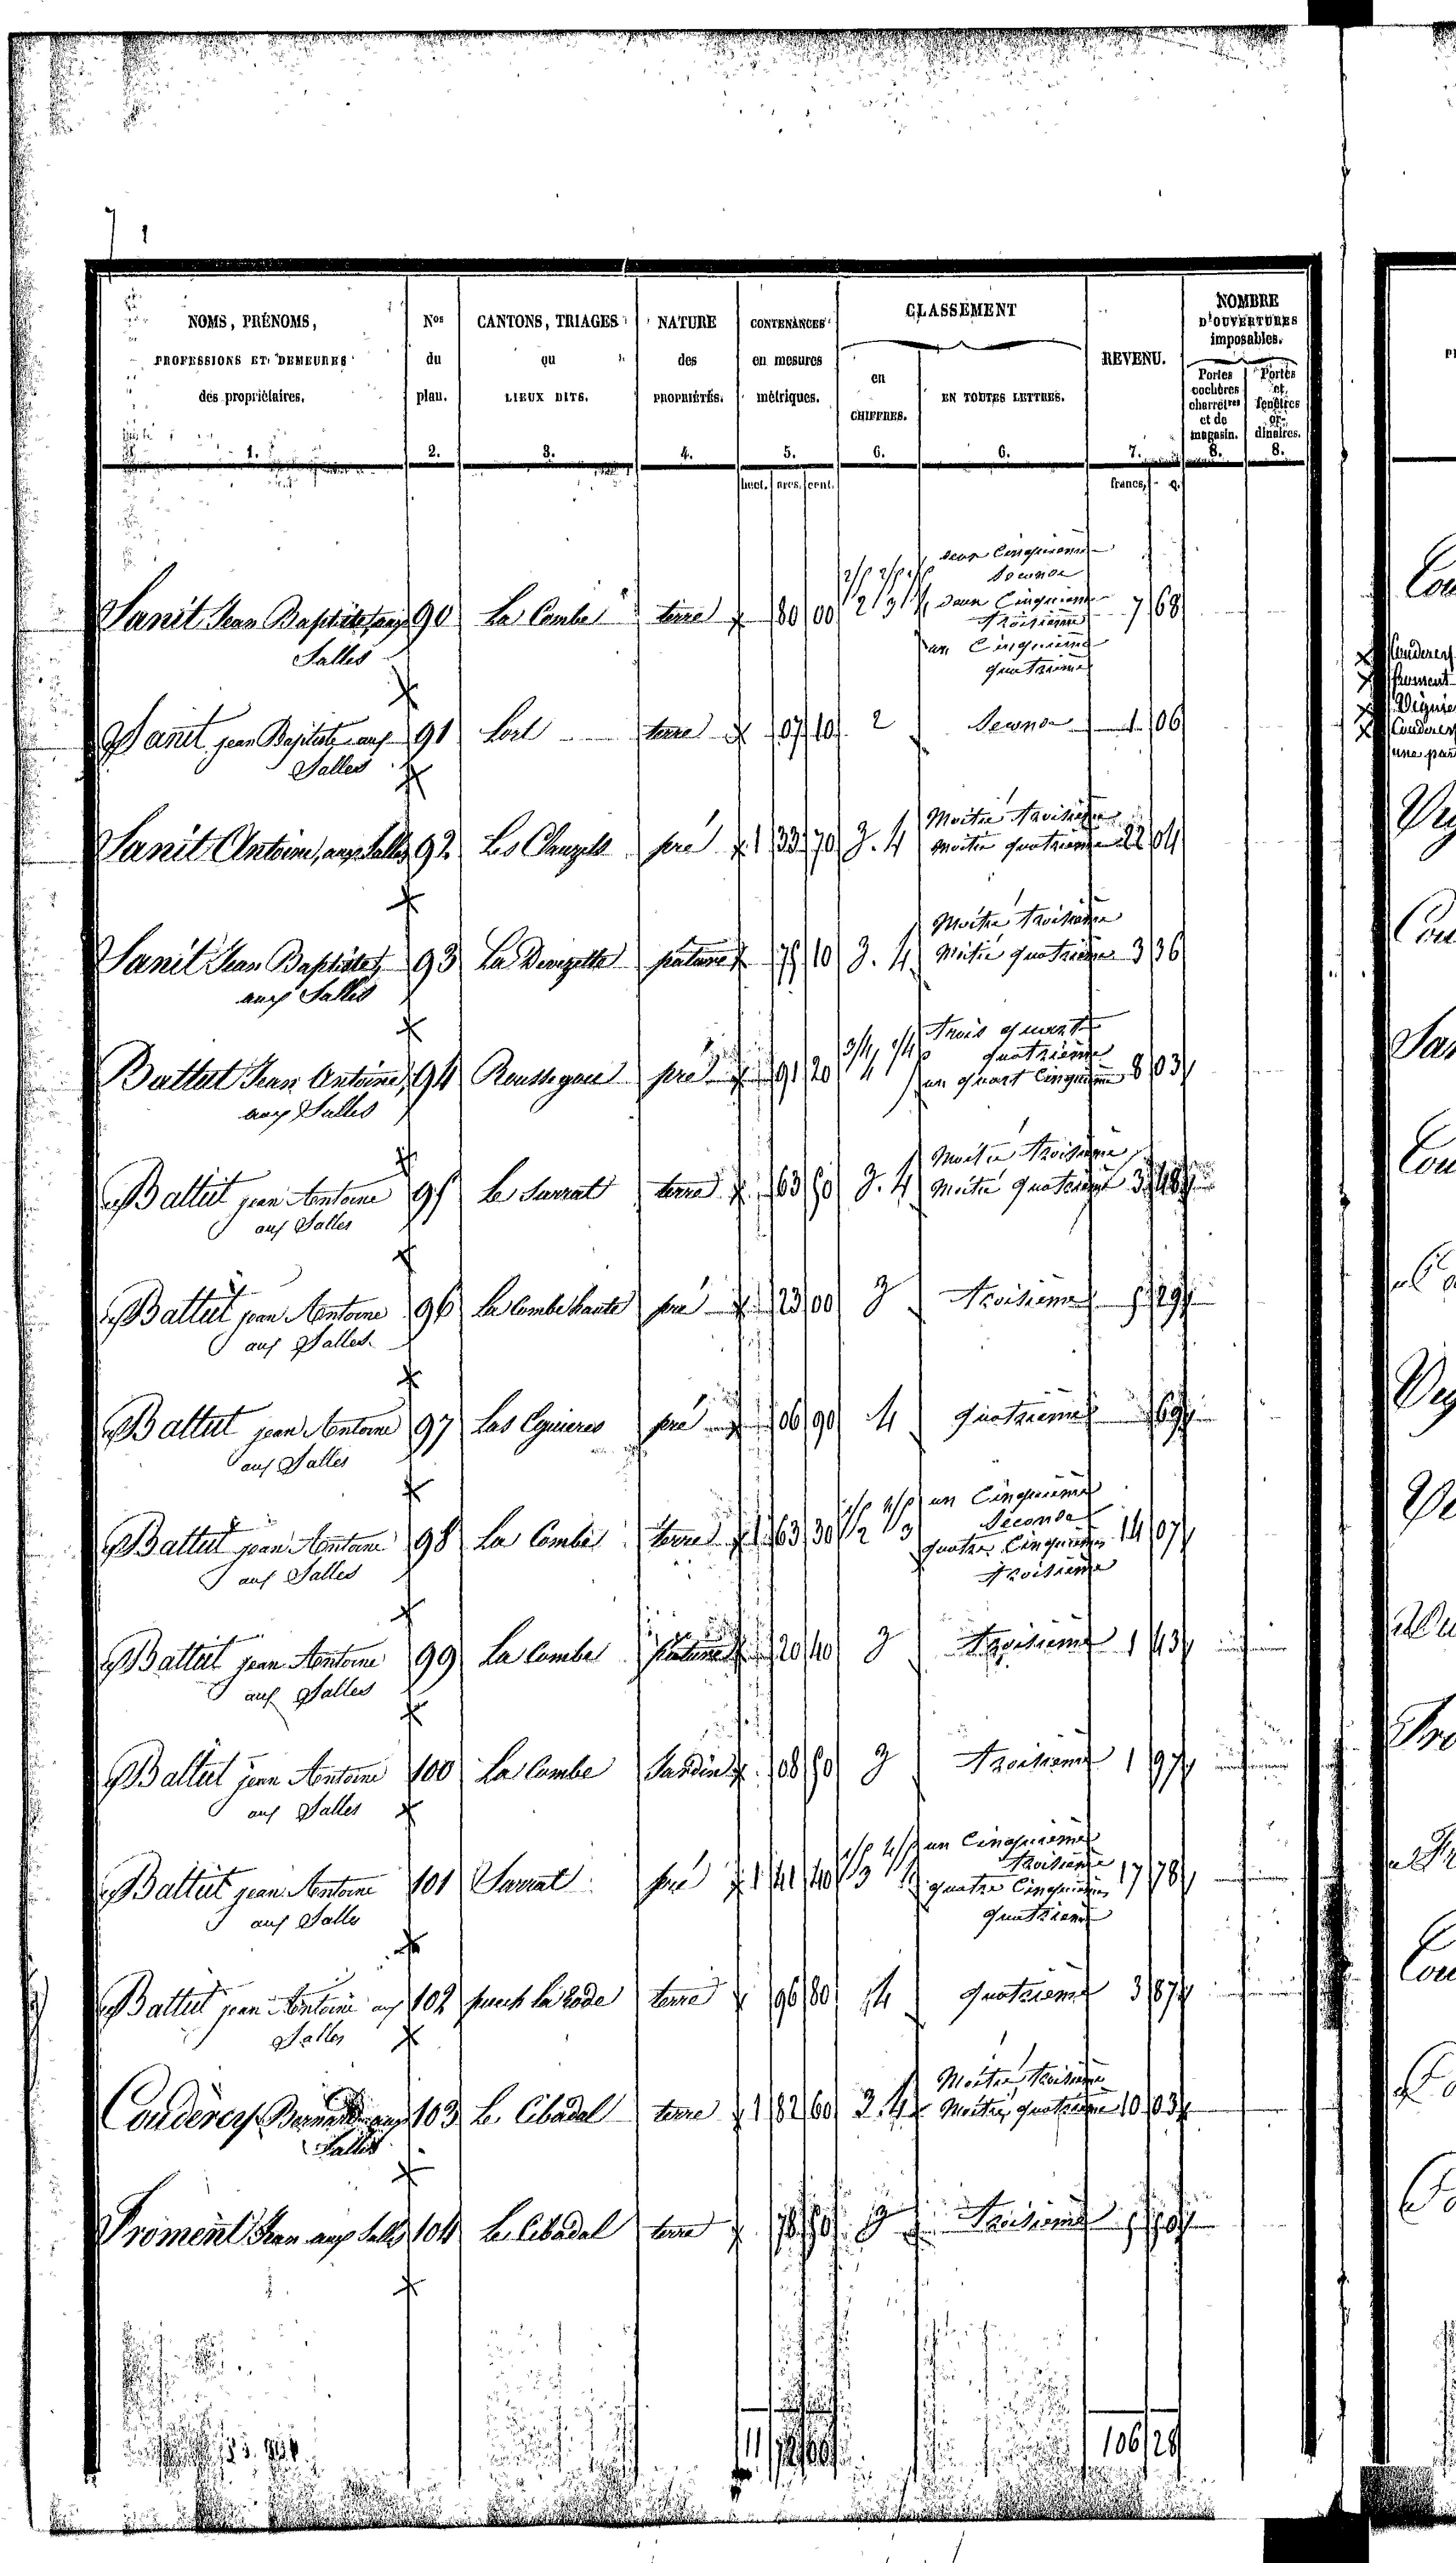 NOMS, PRÉNOMS, PROFESSIONS ET DEMEURES des propriétaires. 1.
Nos du plan. 2.
CANTONS, TRIAGES ou LIEUX DITS. 3.
NATURE des PROPRIÉTÉS. 4.
CONTENANCES en mesures métriques. 5.
CLASSEMENT
en CHIFFRES. 6.
EN TOUTES LETTRES. 6.
REVENU. 7.
NOMBRE D'OUVERTURES imposables.
Portes cochères charretres et de magasin. 8.
Portes et fenêtres or- dinaires. 8.
hect. ares. cent. francs. c.
deux Cinquieme
Seconde
Sanit Jean Baptiste, aux 90 La Combe terre 80 00 2/5 2/5 1/5 2 3 4 deux Cinquieme 7 68
troisieme
Salles un Cinquieme
quatrieme
Sanit jean Baptiste aux 91 Lort terre 07 10 2 Seconde 1 06
Salles
Moitié troisieme
Sanit Antoine, aux Salles 92 Les Clauzels pré 1 33 70 3. 4 moitié quatrieme 22 04
Moitié troisieme
Sanit Jean Baptiste, 93 La Devezette pature 75 10 3. 4 Moitié quatrieme 3 36
aux Salles
trois quart
quatrieme
Battut Jean Antoine, 94 pré 91 20 3/4 1/4 4 5 un quart Cinquieme 8 03
aux Salles
Moitié troisieme
Battut jean Antoine 95 Le Sarrat terre 63 50 3. 4 Moitié quatrieme 3 48
aux Salles
Battut jean Antoine 96 La Combe haute pré 23 00 3 troisieme 5 29
aux Salles
Battut jean Antoine 97 Las pré 06 90 4 quatrieme 69
aux Salles
un Cinquieme
Seconde
Battut jean Antoine 98 La Combe terre 1 63 30 1/5 4/5 2 3 quatre Cinquiemes 14 07
aux Salles troisieme
Battut jean Antoine 99 La Combe pature 20 40 3 troisieme 1 43
aux Salles
Battut jean Antoine 100 La Combe Jardin 08 50 3 troisieme 1 97
aux Salles
un Cinquieme
troisieme
Battut jean Antoine 101 Sarrat pré 1 41 40 1/5 4/5 3 4 quatre Cinquiemes 17 78
aux Salles quatrieme
Battut jean Antoine aux 102 puech la rode terre 96 80 4 quatrieme 3 87
Salles
Moitié troisieme
Coudercy aux 103 Le Cibadal terre 1 82 60 3. 4 Moitié quatrieme 10 03
Salles
Froment Jean aux Salles 104 Le Cibadal terre 78 50 3 troisieme
11 106 28